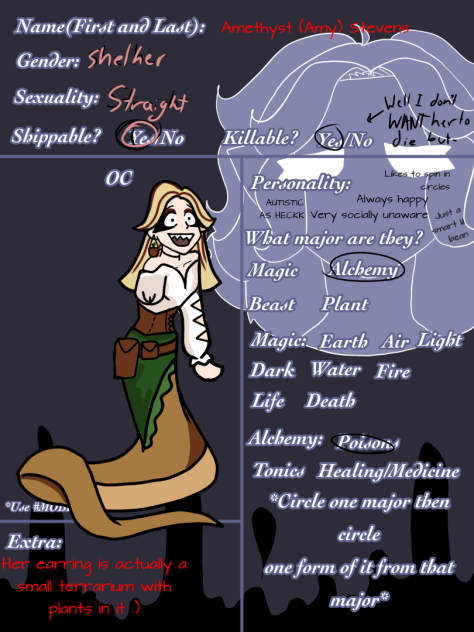 Name(First and Last): Amethyst (Amy) Stevens
Gender: she/her
Sexuality: Straight
Shippable? Yes/No
Killable? Yes/No
Well I don't
WANT her to
die but-
OC
Personality:
Likes to spin in
circles
Always happy
AUTISTIC
AS HECKK
Very socially unaware
Just a
smart lil
bean
What major are they?
Magic Alchemy
Beast Plant
Magic: Earth Air Light
Dark Water Fire
Life Death
Alchemy: Poisons
Tonics Healing/Medicine
*Circle one major then
circle
one form of it from that
major*
*Use
Extra:
Her earring is actually a
small terrarium with
plants in it :)